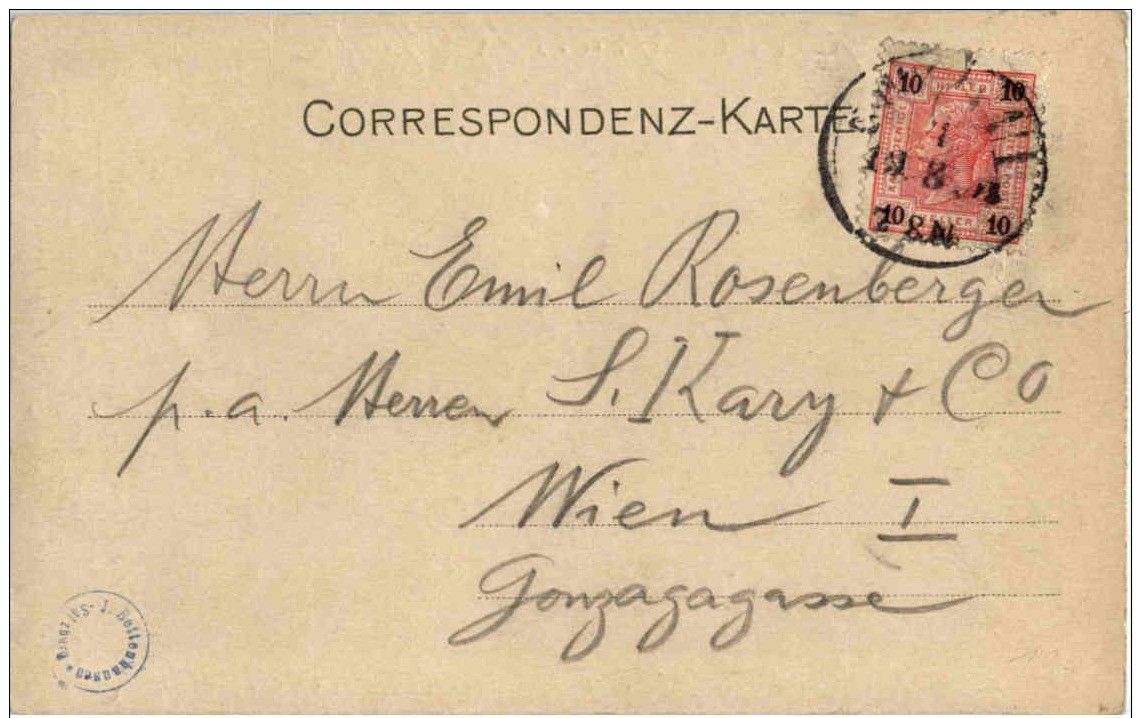 CORRESPONDENZ-KARTE
10 HELLER 10
10 HELLER 10
8
8 N
Herrn Emil Rosenberger
p. a. Herren S. Kary & Co
Wien I
Gonzagagasse